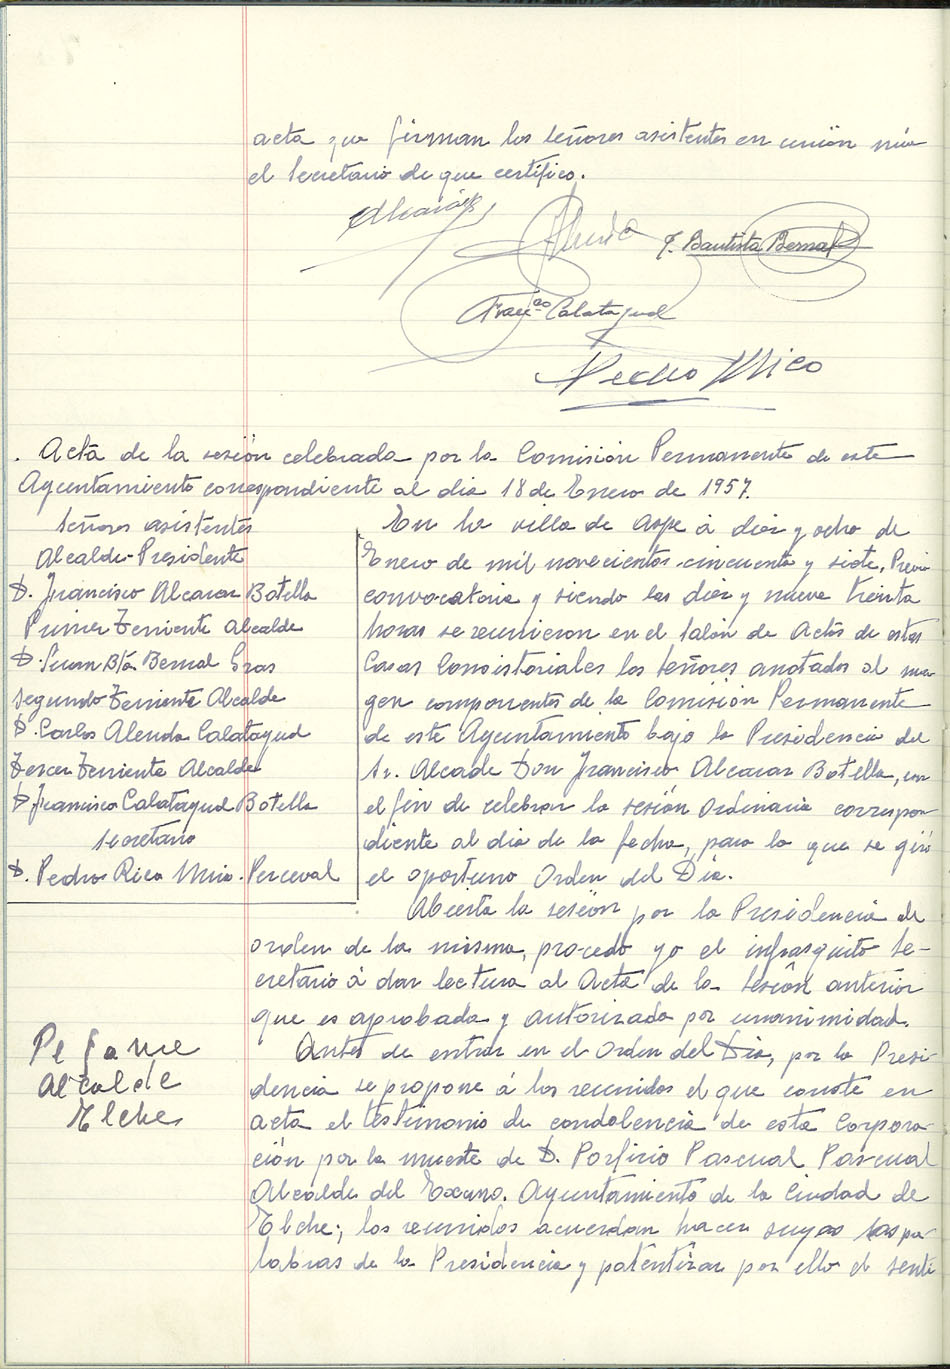 acta que firman los señores asistentes en unión mía
el Secretario de que certifico.
J. Bautista Bernal
Franco Calatayud
Pedro Mico
. Acta de la sesión celebrada por la Comisión Permanente de este
Ayuntamiento correspondiente al dia 18 de Enero de 1957.
Señores asistentes
Alcalde-Presidente
D. Francisco Alcaraz Botella
Primer Teniente Alcalde
D. Juan Bta. Bernal Gras
Segundo Teniente Alcalde
D. Carlos Alenda Calatayud
Tercer Teniente Alcalde
D. Francisco Calatayud Botella
Secretario
D. Pedro Rico Perceval
En la villa de Aspe á diez y ocho de
Enero de mil novecientos cincuenta y siete, Previa
convocatoria y siendo las diez y nueve treinta
horas se reunieron en el Salón de Actos de estas
Casas Consistoriales los señores anotados al mar
gen componentes de la Comisión Permanente
de este Ayuntamiento bajo la Presidencia del
Sr. Alcade Don Francisco Alcaraz Botella, con
el fin de celebrar la sesión Ordinaria correspon
diente al dia de la fecha, para la que se giró
el oportuno Orden del Dia.
Abierta la sesión por la Presidencia de
orden de la misma, procedo yo el infrasquito Se-
cretario á dar lectura al Acta de la sesión anterior
que es aprobada y autorizada por unanimidad.
Pesame
Alcalde
Elche
Antes de entrar en el Orden del Dia, por la Presi-
dencia se propone á los reunidos el que conste en
acta el testimonio de condolencia de esta Corpora-
ción por la muerte de D. Porfirio Pascual Pascual
Alcalde del Excmo. Ayuntamiento de la Ciudad de
Elche; los reunidos acuerdan hacer suyas las pa-
labras de la Presidencia y patentizar por ello el senti